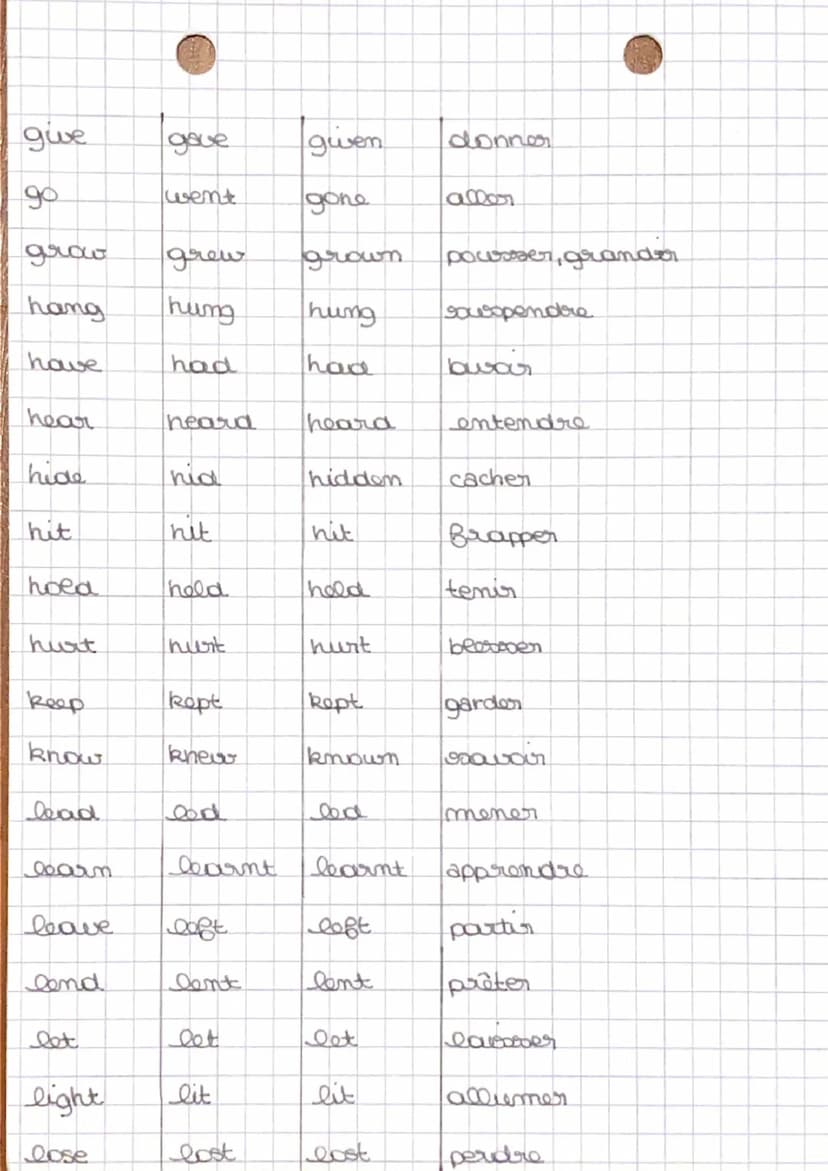 give gave given donner
go went gone aller
grow grew grown pousser, grandir
hang hung hung suspendre
have had had avoir
hear heard heard entendre
hide hid hidden cacher
hit hit hit frapper
hold held held tenir
hurt hurt hurt blesser
keep kept kept garder
know knew known savoir
lead led led mener
learn learnt learnt apprendre
leave left left partir
lend lent lent prêter
let let let laisser
light lit lit allumer
lose lost lost perdre